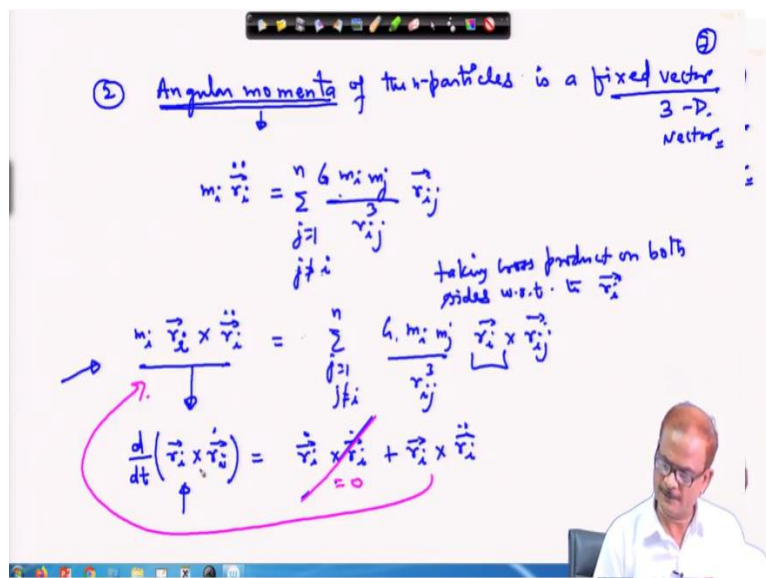 ⑤
② Angular momenta of the n-particles is a fixed vector
3-D.
Vector
m_i \ddot{\vec{r}}_i = \sum_{j=1, j≠i}^{n} \frac{G m_i m_j}{r_{ij}^3} \vec{r}_{ij}
taking cross product on both
sides w.r.t. to \vec{r}_i
m_i \vec{r}_i × \ddot{\vec{r}}_i = \sum_{j=1, j≠i}^{n} \frac{G. m_i m_j}{r_{ij}^3} \vec{r}_i × \vec{r}_{ij}
\frac{d}{dt}(\vec{r}_i × \dot{\vec{r}}_i) = \dot{\vec{r}}_i × \dot{\vec{r}}_i + \vec{r}_i × \ddot{\vec{r}}_i
=0